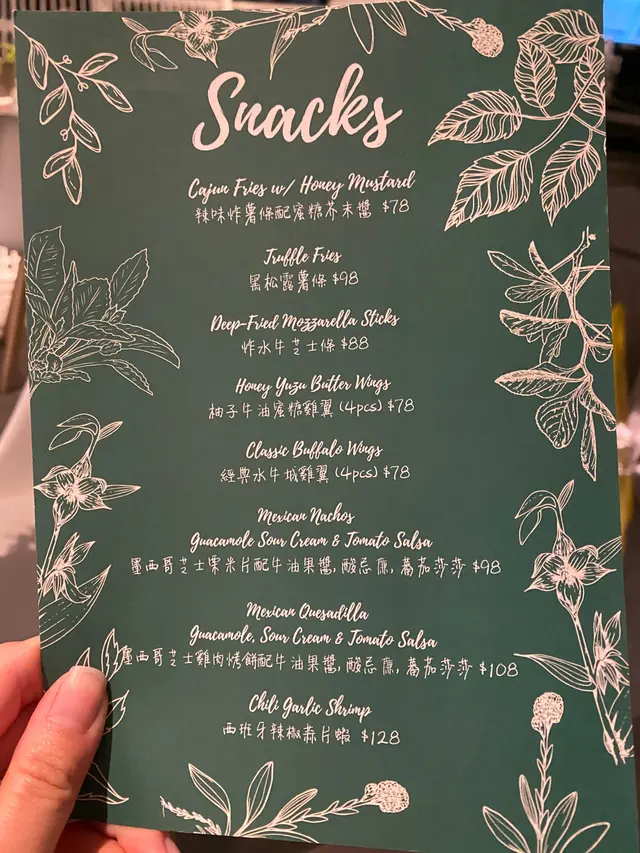 Snacks
Cajun Fries w/ Honey Mustard
辣味炸薯條配蜜糖芥末醬 $78
Truffle Fries
黑松露薯條 $98
Deep-Fried Mozzarella Sticks
炸水牛芝士條 $88
Honey Yuzu Butter Wings
柚子牛油蜜糖雞翼 (4pcs) $78
Classic Buffalo Wings
經典水牛城雞翼 (4pcs) $78
Mexican Nachos
Guacamole Sour Cream & Tomato Salsa
墨西哥芝士粟米片配牛油果醬, 酸忌廉, 蕃茄莎莎 $98
Mexican Quesadilla
Guacamole, Sour Cream & Tomato Salsa
墨西哥芝士雞肉烤餅配牛油果醬, 酸忌廉, 蕃茄莎莎 $108
Chili Garlic Shrimp
西班牙辣椒蒜片蝦 $128